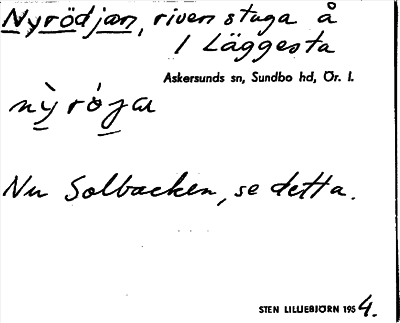 Nyrödjan, riven stuga å
1 Läggesta
Askersunds sn, Sundbo hd, Ör. l.
nỳrója
Nu Solbacken, se detta.
STEN LILLIEBJÖRN 1954.